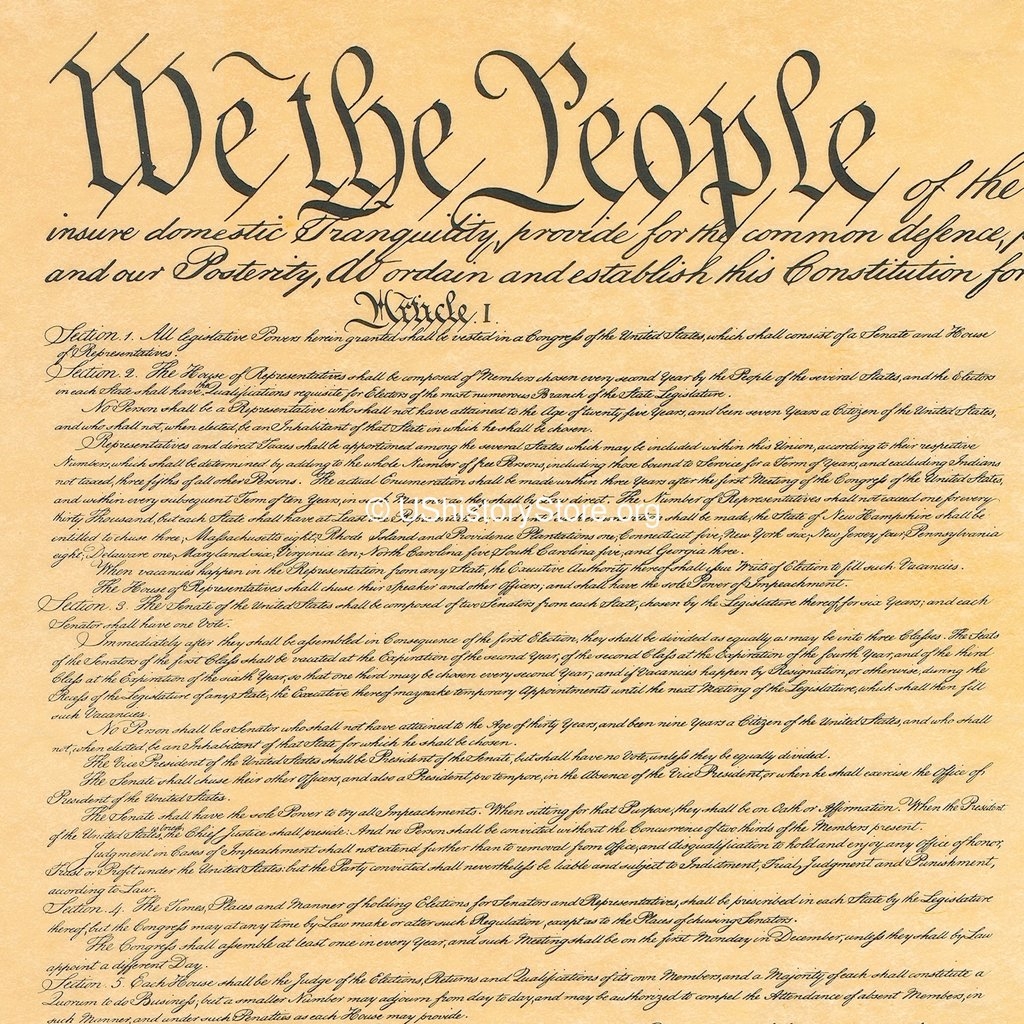 We the People of the
insure domestic Tranquility, provide for the common defence,
and our Posterity, do ordain and establish this Constitution for
Article I
Section 1. All legislative Powers herein granted shall be vested in a Congress of the United States, which shall consist of a Senate and House
of Representatives.
Section 2. The House of Representatives shall be composed of Members chosen every second Year by the People of the several States, and the Electors
in each State shall have the Qualifications requisite for Electors of the most numerous Branch of the State Legislature.
No Person shall be a Representative who shall not have attained to the Age of twenty five Years, and been seven Years a Citizen of the United States,
and who shall not, when elected, be an Inhabitant of that State in which he shall be chosen.
Representatives and direct Taxes shall be apportioned among the several States which may be included within this Union, according to their respective
Numbers, which shall be determined by adding to the whole Number of free Persons, including those bound to Service for a Term of Years, and excluding Indians
not taxed, three fifths of all other Persons. The actual Enumeration shall be made within three Years after the first Meeting of the Congress of the United States,
and within every subsequent Term of ten Years, in such Manner as they shall by Law direct. The Number of Representatives shall not exceed one for every
thirty Thousand, but each State shall have at Least shall be made, the State of New Hampshire shall be
© UShistoryStore.org
entitled to chuse three, Massachusetts eight, Rhode Island and Providence Plantations one, Connecticut five, New York six, New Jersey four, Pennsylvania
eight, Delaware one, Maryland six, Virginia ten, North Carolina five, South Carolina five, and Georgia three.
When vacancies happen in the Representation from any State, the Executive Authority thereof shall issue Writs of Election to fill such Vacancies.
The House of Representatives shall chuse their Speaker and other Officers; and shall have the sole Power of Impeachment.
Section. 3. The Senate of the United States shall be composed of two Senators from each State, chosen by the Legislature thereof, for six Years; and each
Senator shall have one Vote.
Immediately after they shall be assembled in Consequence of the first Election, they shall be divided as equally as may be into three Classes. The Seats
of the Senators of the first Class shall be vacated at the Expiration of the second Year, of the second Class at the Expiration of the fourth Year, and of the third
Class at the Expiration of the sixth Year, so that one third may be chosen every second Year; and if Vacancies happen by Resignation, or otherwise, during the
Recess of the Legislature of any State, the Executive thereof may make temporary Appointments until the next Meeting of the Legislature, which shall then fill
such Vacancies.
No Person shall be a Senator who shall not have attained to the Age of thirty Years, and been nine Years a Citizen of the United States, and who shall
not, when elected, be an Inhabitant of that State for which he shall be chosen.
The Vice President of the United States shall be President of the Senate, but shall have no Vote, unless they be equally divided.
The Senate shall chuse their other Officers, and also a President pro tempore, in the Absence of the Vice President, or when he shall exercise the Office of
President of the United States.
The Senate shall have the sole Power to try all Impeachments. When sitting for that Purpose, they shall be on Oath or Affirmation. When the President
of the United States is tried, the Chief Justice shall preside: And no Person shall be convicted without the Concurrence of two thirds of the Members present.
Judgment in Cases of Impeachment shall not extend further than to removal from Office, and disqualification to hold and enjoy any Office of honor,
Trust or Profit under the United States: but the Party convicted shall nevertheless be liable and subject to Indictment, Trial, Judgment and Punishment,
according to Law.
Section. 4. The Times, Places and Manner of holding Elections for Senators and Representatives, shall be prescribed in each State by the Legislature
thereof; but the Congress may at any time by Law make or alter such Regulation, except as to the Places of chusing Senators.
The Congress shall assemble at least once in every Year, and such Meeting shall be on the first Monday in December, unless they shall by Law
appoint a different Day.
Section. 5. Each House shall be the Judge of the Elections, Returns and Qualifications of its own Members, and a Majority of each shall constitute a
Quorum to do Business; but a smaller Number may adjourn from day to day, and may be authorized to compel the Attendance of absent Members, in
such Manner, and under such Penalties as each House may provide.